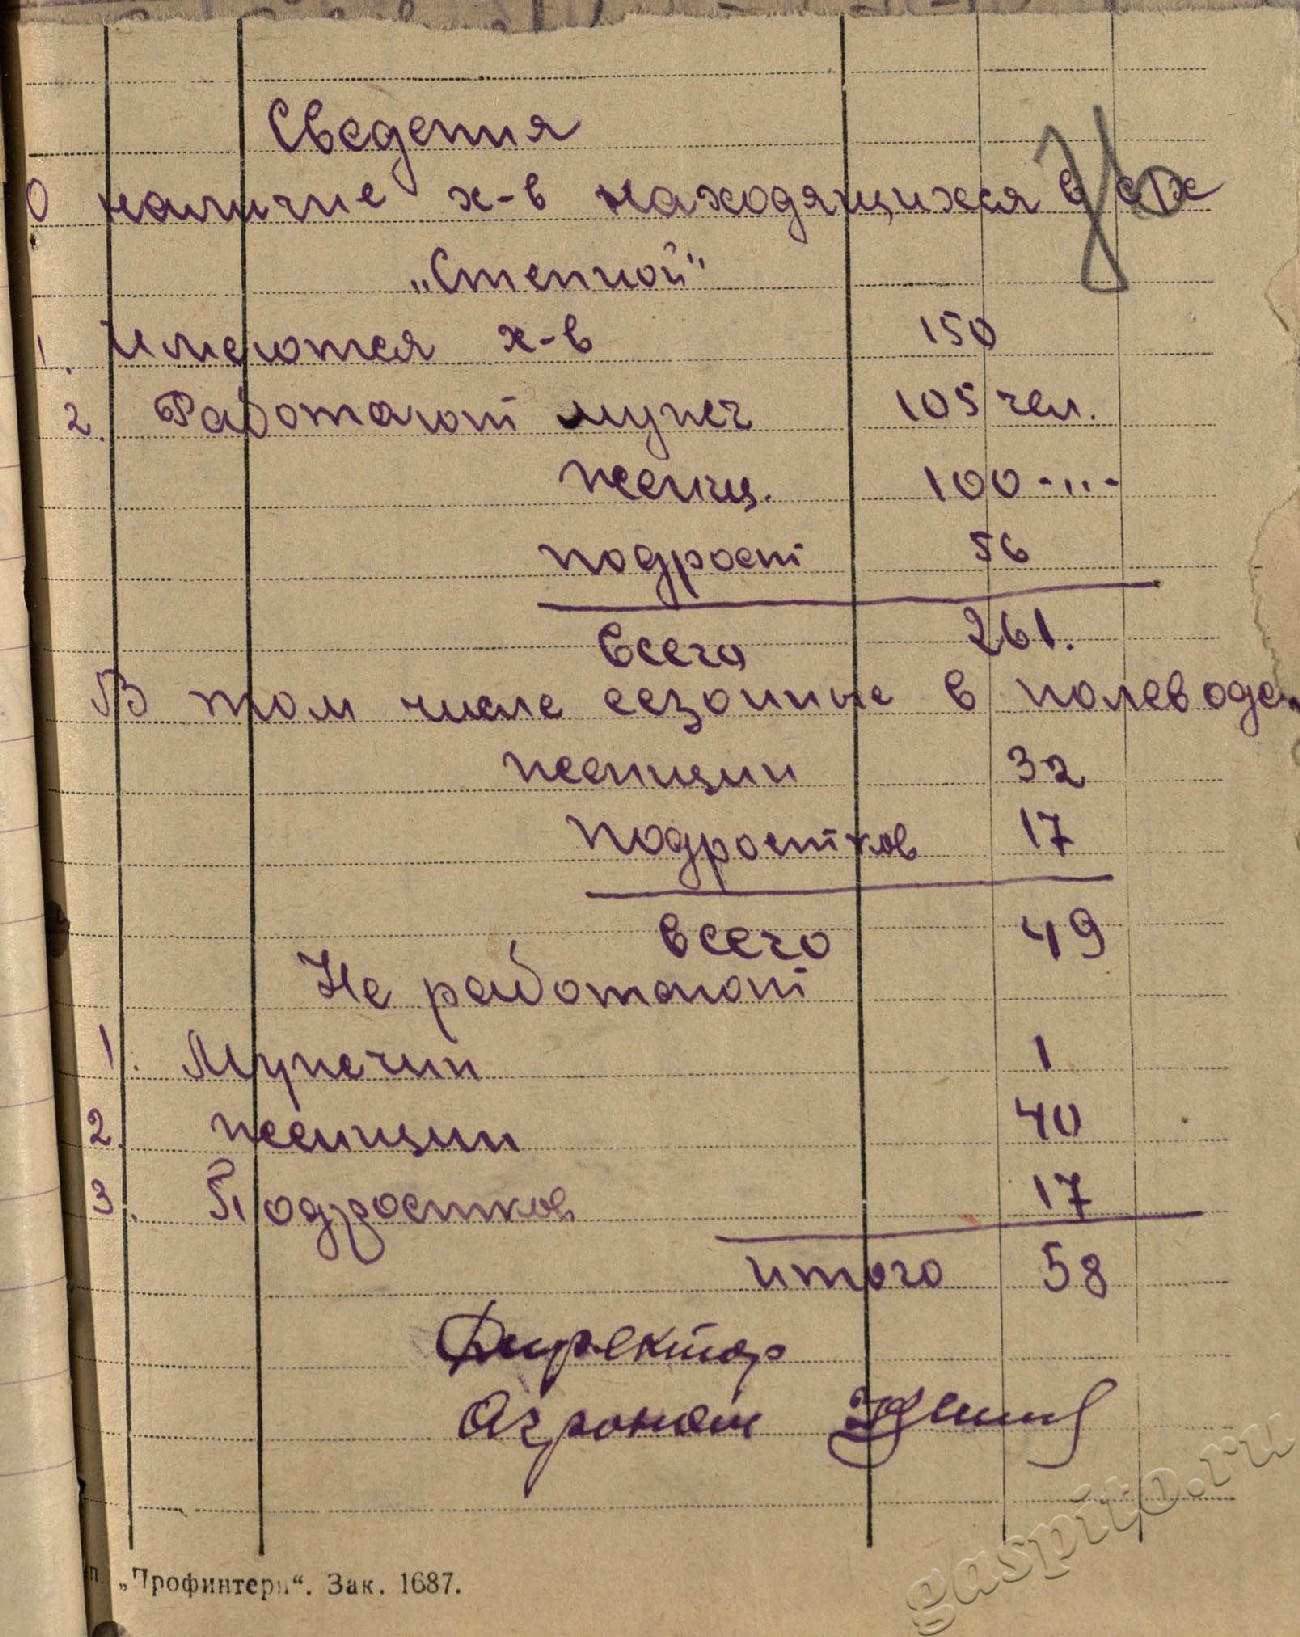 Сведения
о наличие х-в находящихся в с/х
„Степной"
1. Имеются х-в 150
2. Работают мужч 105 чел.
женщ. 100 -"-
подрост 56
Всего 261.
В том числе сезонные в полеводс.
женщин 32
Подростков 17
всего 49
Не работают
1. Мужчин 1
2. женщин 40
3. Подростков 17
итого 58
Директор
Агроном
„Профинтерн“. Зак. 1687.
gaspito.ru